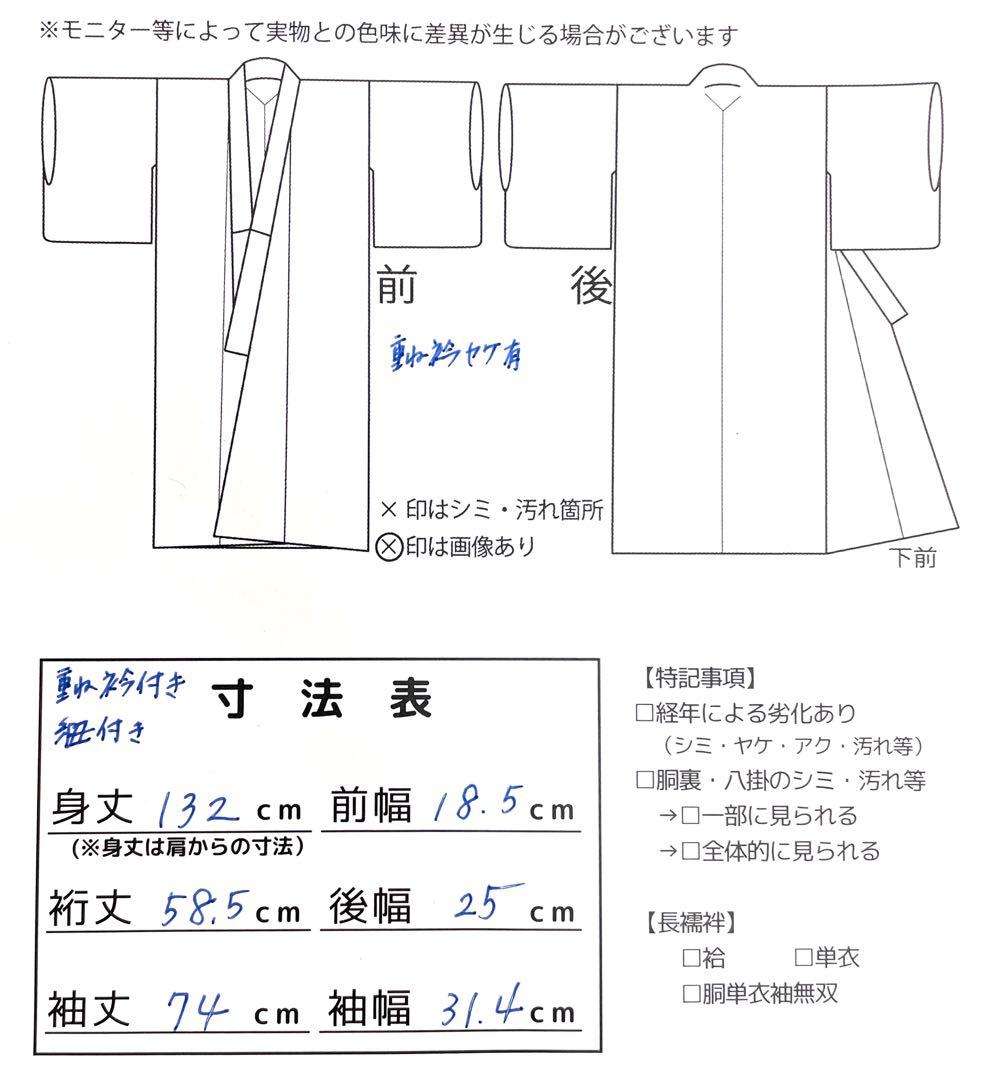 ※モニター等によって実物との色味に差異が生じる場合がございます
前
後
重ね衿ヤケ有
× 印はシミ・汚れ箇所
⊗印は画像あり
下前
重ね衿付き
紐付き
寸法表
身丈 132 cm 前幅 18.5 cm
(※身丈は肩からの寸法)
裄丈 58.5 cm 後幅 25 cm
袖丈 74 cm 袖幅 31.4 cm
【特記事項】
□経年による劣化あり
（シミ・ヤケ・アク・汚れ等）
□胴裏・八掛のシミ・汚れ等
→□一部に見られる
→□全体的に見られる
【長襦袢】
□袷 □単衣
□胴単衣袖無双